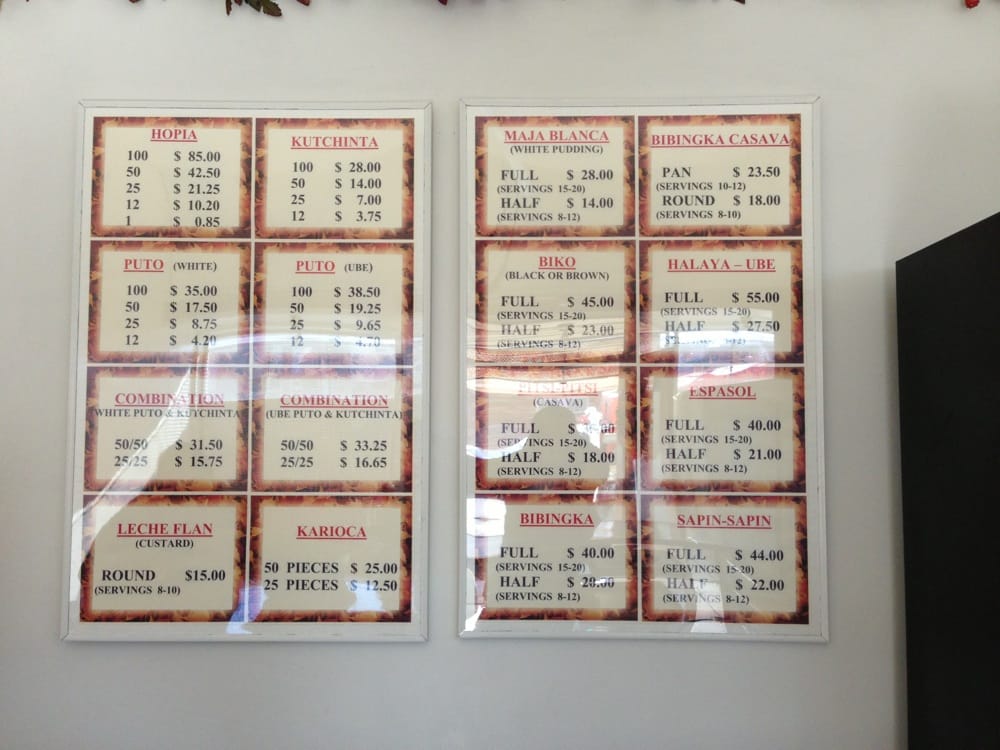 HOPIA
100 $ 85.00
50 $ 42.50
25 $ 21.25
12 $ 10.20
1 $ 0.85
KUTCHINTA
100 $ 28.00
50 $ 14.00
25 $ 7.00
12 $ 3.75
PUTO (WHITE)
100 $ 35.00
50 $ 17.50
25 $ 8.75
12 $ 4.20
PUTO (UBE)
100 $ 38.50
50 $ 19.25
25 $ 9.65
12 $ 4.70
COMBINATION
WHITE PUTO & KUTCHINTA
50/50 $ 31.50
25/25 $ 15.75
COMBINATION
(UBE PUTO & KUTCHINTA)
50/50 $ 33.25
25/25 $ 16.65
LECHE FLAN
(CUSTARD)
ROUND $15.00
(SERVINGS 8-10)
KARIOCA
50 PIECES $ 25.00
25 PIECES $ 12.50
MAJA BLANCA
(WHITE PUDDING)
FULL $ 28.00
(SERVINGS 15-20)
HALF $ 14.00
(SERVINGS 8-12)
BIBINGKA CASAVA
PAN $ 23.50
(SERVINGS 10-12)
ROUND $ 18.00
(SERVINGS 8-10)
BIKO
(BLACK OR BROWN)
FULL $ 45.00
(SERVINGS 15-20)
HALF $ 23.00
(SERVINGS 8-12)
HALAYA – UBE
FULL $ 55.00
(SERVINGS 15-20)
HALF $ 27.50
(CASAVA)
FULL $
(SERVINGS 15-20)
HALF $ 18.00
(SERVINGS 8-12)
ESPASOL
FULL $ 40.00
(SERVINGS 15-20)
HALF $ 21.00
(SERVINGS 8-12)
BIBINGKA
FULL $ 40.00
(SERVINGS 15-20)
HALF $ 20.00
(SERVINGS 8-12)
SAPIN-SAPIN
FULL $ 44.00
(SERVINGS 15-20)
HALF $ 22.00
(SERVINGS 8-12)